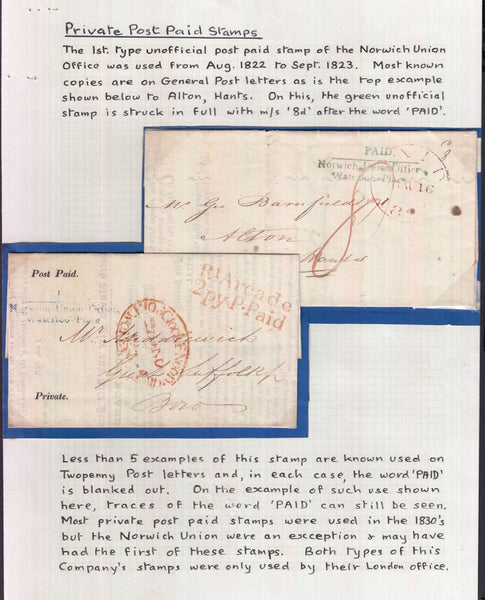 Private Post Paid Stamps
The 1st. type unofficial post paid stamp of the Norwich Union
Office was used from Aug. 1822 to Sept. 1823. Most known
copies are on General Post letters as is the top example
shown below to Alton, Hants. On this, the green unofficial
stamp is struck in full with m/s '8d' after the word 'PAID'.
PAID
Norwich Union Office
Waterloo Place
16
Mr Geo Bamfield
Alton
Hands
8
Post Paid.
Norwich Union Office
Waterloo Place
Rt Arcade
2py P. Paid
Mr.
Great Suffolk
Boro
Private.
Less than 5 examples of this stamp are known used on
Twopenny Post letters and, in each case, the word 'PAID'
is blanked out. On the example of such use shown
here, traces of the word 'PAID' can still be seen.
Most private post paid stamps were used in the 1830's
but the Norwich Union were an exception & may have
had the first of these stamps. Both types of this
Company's stamps were only used by their London office.